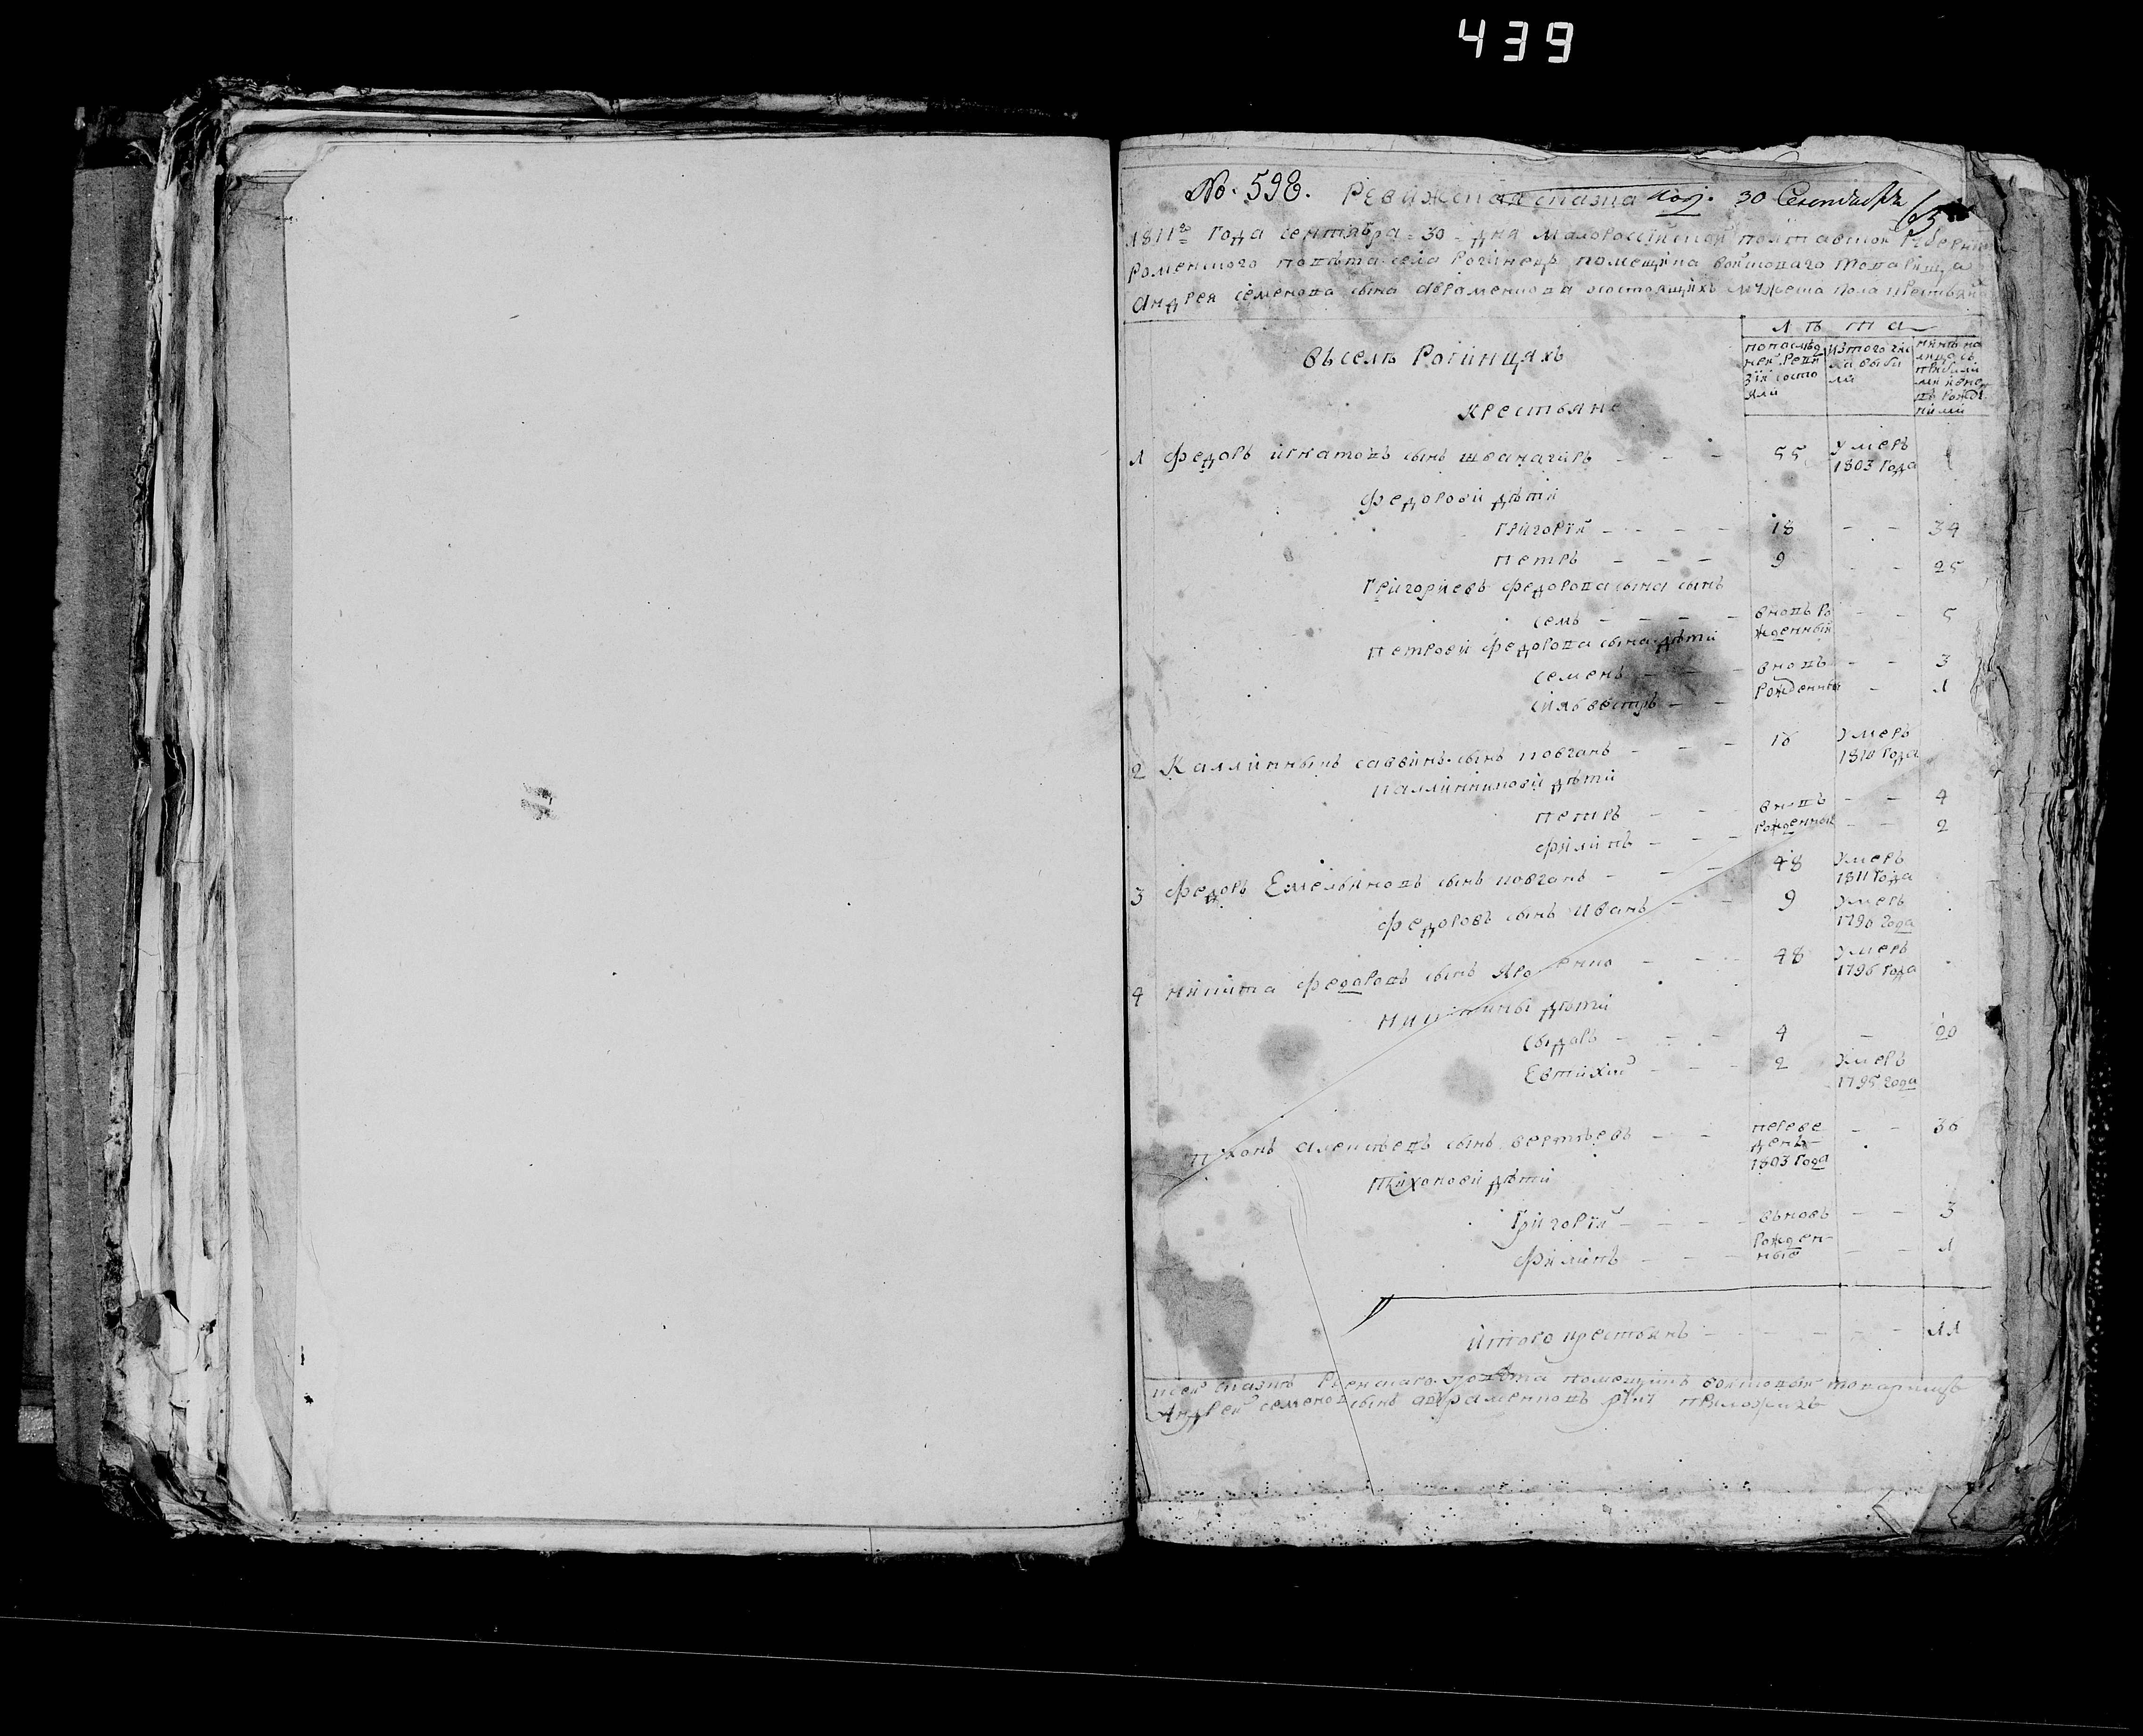 439
No. 598. Ревижская сказка 30 Сентября
1811го Года сентября 30 дня Малороссійской полтавской Губерніи
Роменского повѣта села Рогинецъ помещика войскового товарища
Андрея семенова сына Авраменкова состоящихъ мужеска пола крестьянъ
Лѣта
въ селѣ Рогинцяхъ
по послѣд
ней Реви
зіи состо
яли
изтого чис
ла выбы
ли
нынѣ на
лицо съ
прибыли
ми и
вь рожде
ними
крестьяне
1 Федоръ игнатовъ сынъ 55 умеръ
1803 Года
Федорови дѣти
Григорій 18 34
петръ 9 25
Григориевъ Федорова сына сынъ
семъ вновь ро 5
жденный
Петрови Федорова сына дѣти
семенъ вновь 3
силвестръ Рожденны 1
2 Каллинныкъ саввинъ сынъ ковганъ 16 умеръ
1810 Года
каллинникови дѣти
петръ вновь 4
филипъ рожденные 2
3 Федоръ Емельяновъ сынъ ковганъ 48 умеръ
1811 Года
Федоровъ сынъ иванъ 9 умеръ
1796 года
4 никита федоровъ сынъ 48 умеръ
1796 Года
никитины дѣти
сыдоръ 4 20
Евтихій 2 умеръ
1795 года
алексѣевъ сынъ переве 36
денъ
1803 Года
Тихонови дѣти
Григорій вьновь 3
Филипъ Рожден-
ные 1
итого крестьянъ 11
сказкѣ повѣта помещикъ войсковый товарищъ
Андрей семеновъ сынъ авраменковъ руку приложилъ